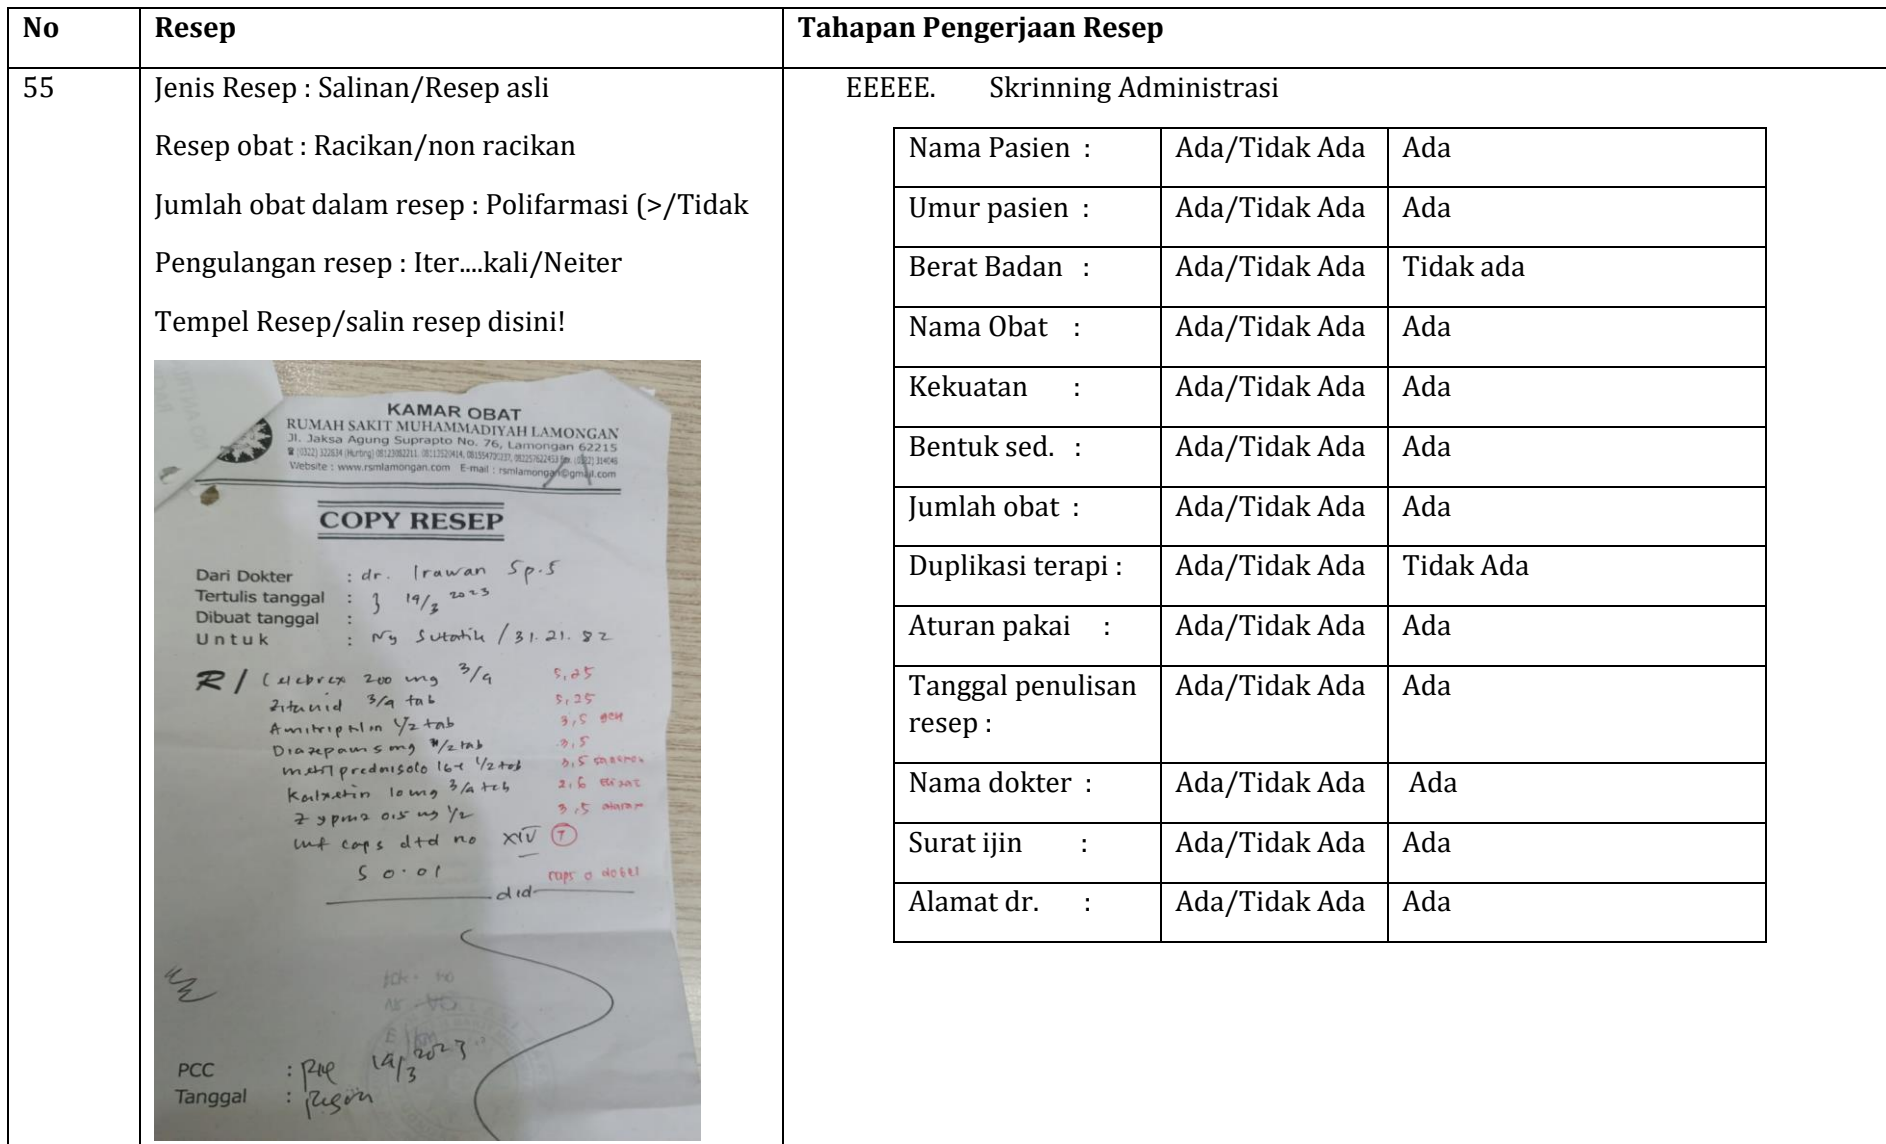 No Resep Tahapan Pengerjaan Resep
55 Jenis Resep : Salinan/Resep asli
Resep obat : Racikan/non racikan
Jumlah obat dalam resep : Polifarmasi (>/Tidak
Pengulangan resep : Iter....kali/Neiter
Tempel Resep/salin resep disini!
KAMAR OBAT
RUMAH SAKIT MUHAMMADIYAH LAMONGAN
Jl. Jaksa Agung Suprapto No. 76, Lamongan 62215
Website : www.rsmlamongan.com E-mail : rsmlamongan@gmail.com
COPY RESEP
Dari Dokter : dr. Irawan Sp.S
Tertulis tanggal : 19/3 2023
Dibuat tanggal :
Untuk : Ny Sutatik / 31.21.82
R/ Celebrex 200 mg 3/4 5,25
3/4 tab 5,25
Amitriptilin 1/2 tab 3,5
Diazepam 5 mg 1/2 tab 3,5
metil prednisolo 16 1/2 tab 3,5
Kalxetin 10 mg 3/4 tab 2,6
Zypma 0.5 mg 1/2 3,5
mf caps dtd no XIV 7
S 0.01 caps 0
did
PCC : 19/3 2023
Tanggal :
EEEEE. Skrinning Administrasi
Nama Pasien : Ada/Tidak Ada Ada
Umur pasien : Ada/Tidak Ada Ada
Berat Badan : Ada/Tidak Ada Tidak ada
Nama Obat : Ada/Tidak Ada Ada
Kekuatan : Ada/Tidak Ada Ada
Bentuk sed. : Ada/Tidak Ada Ada
Jumlah obat : Ada/Tidak Ada Ada
Duplikasi terapi : Ada/Tidak Ada Tidak Ada
Aturan pakai : Ada/Tidak Ada Ada
Tanggal penulisan Ada/Tidak Ada Ada
resep :
Nama dokter : Ada/Tidak Ada Ada
Surat ijin : Ada/Tidak Ada Ada
Alamat dr. : Ada/Tidak Ada Ada